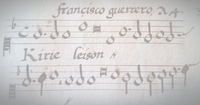 francisco guerrero, A 4
Kirie leison